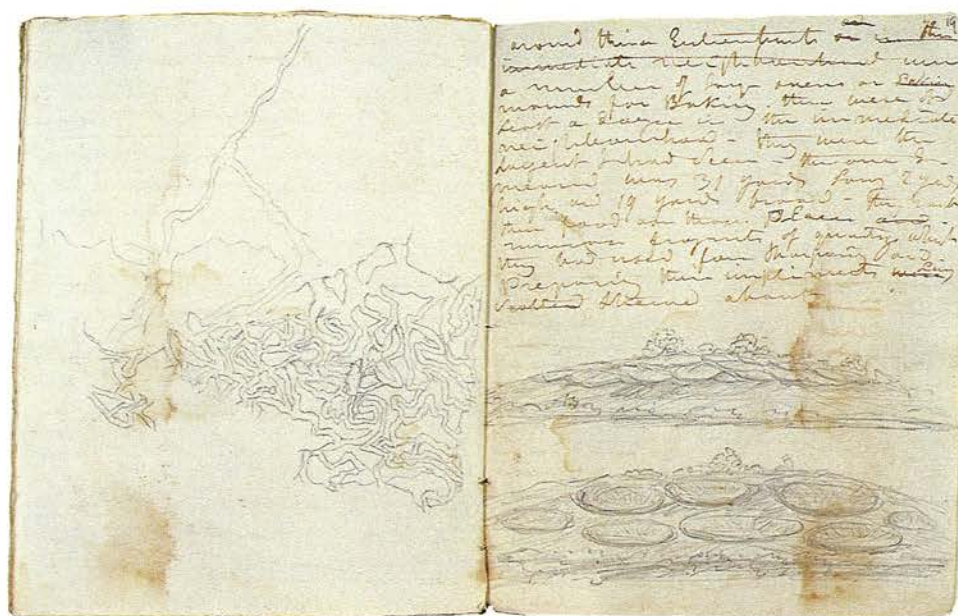 around thier
immediate neighbourhood were
a number of large ovens or
mounds for Baking. there were at
least a dozen in the immediate
neighbourhood - they were the
largest I had seen - the one I
measured was 31 yards long 2 yds
high and 19 yards broad - the cook
their food in these Places and -
numerous fragments of quartz which
they had used for sharpening and
Preparing their impliments were
scattered strewed about